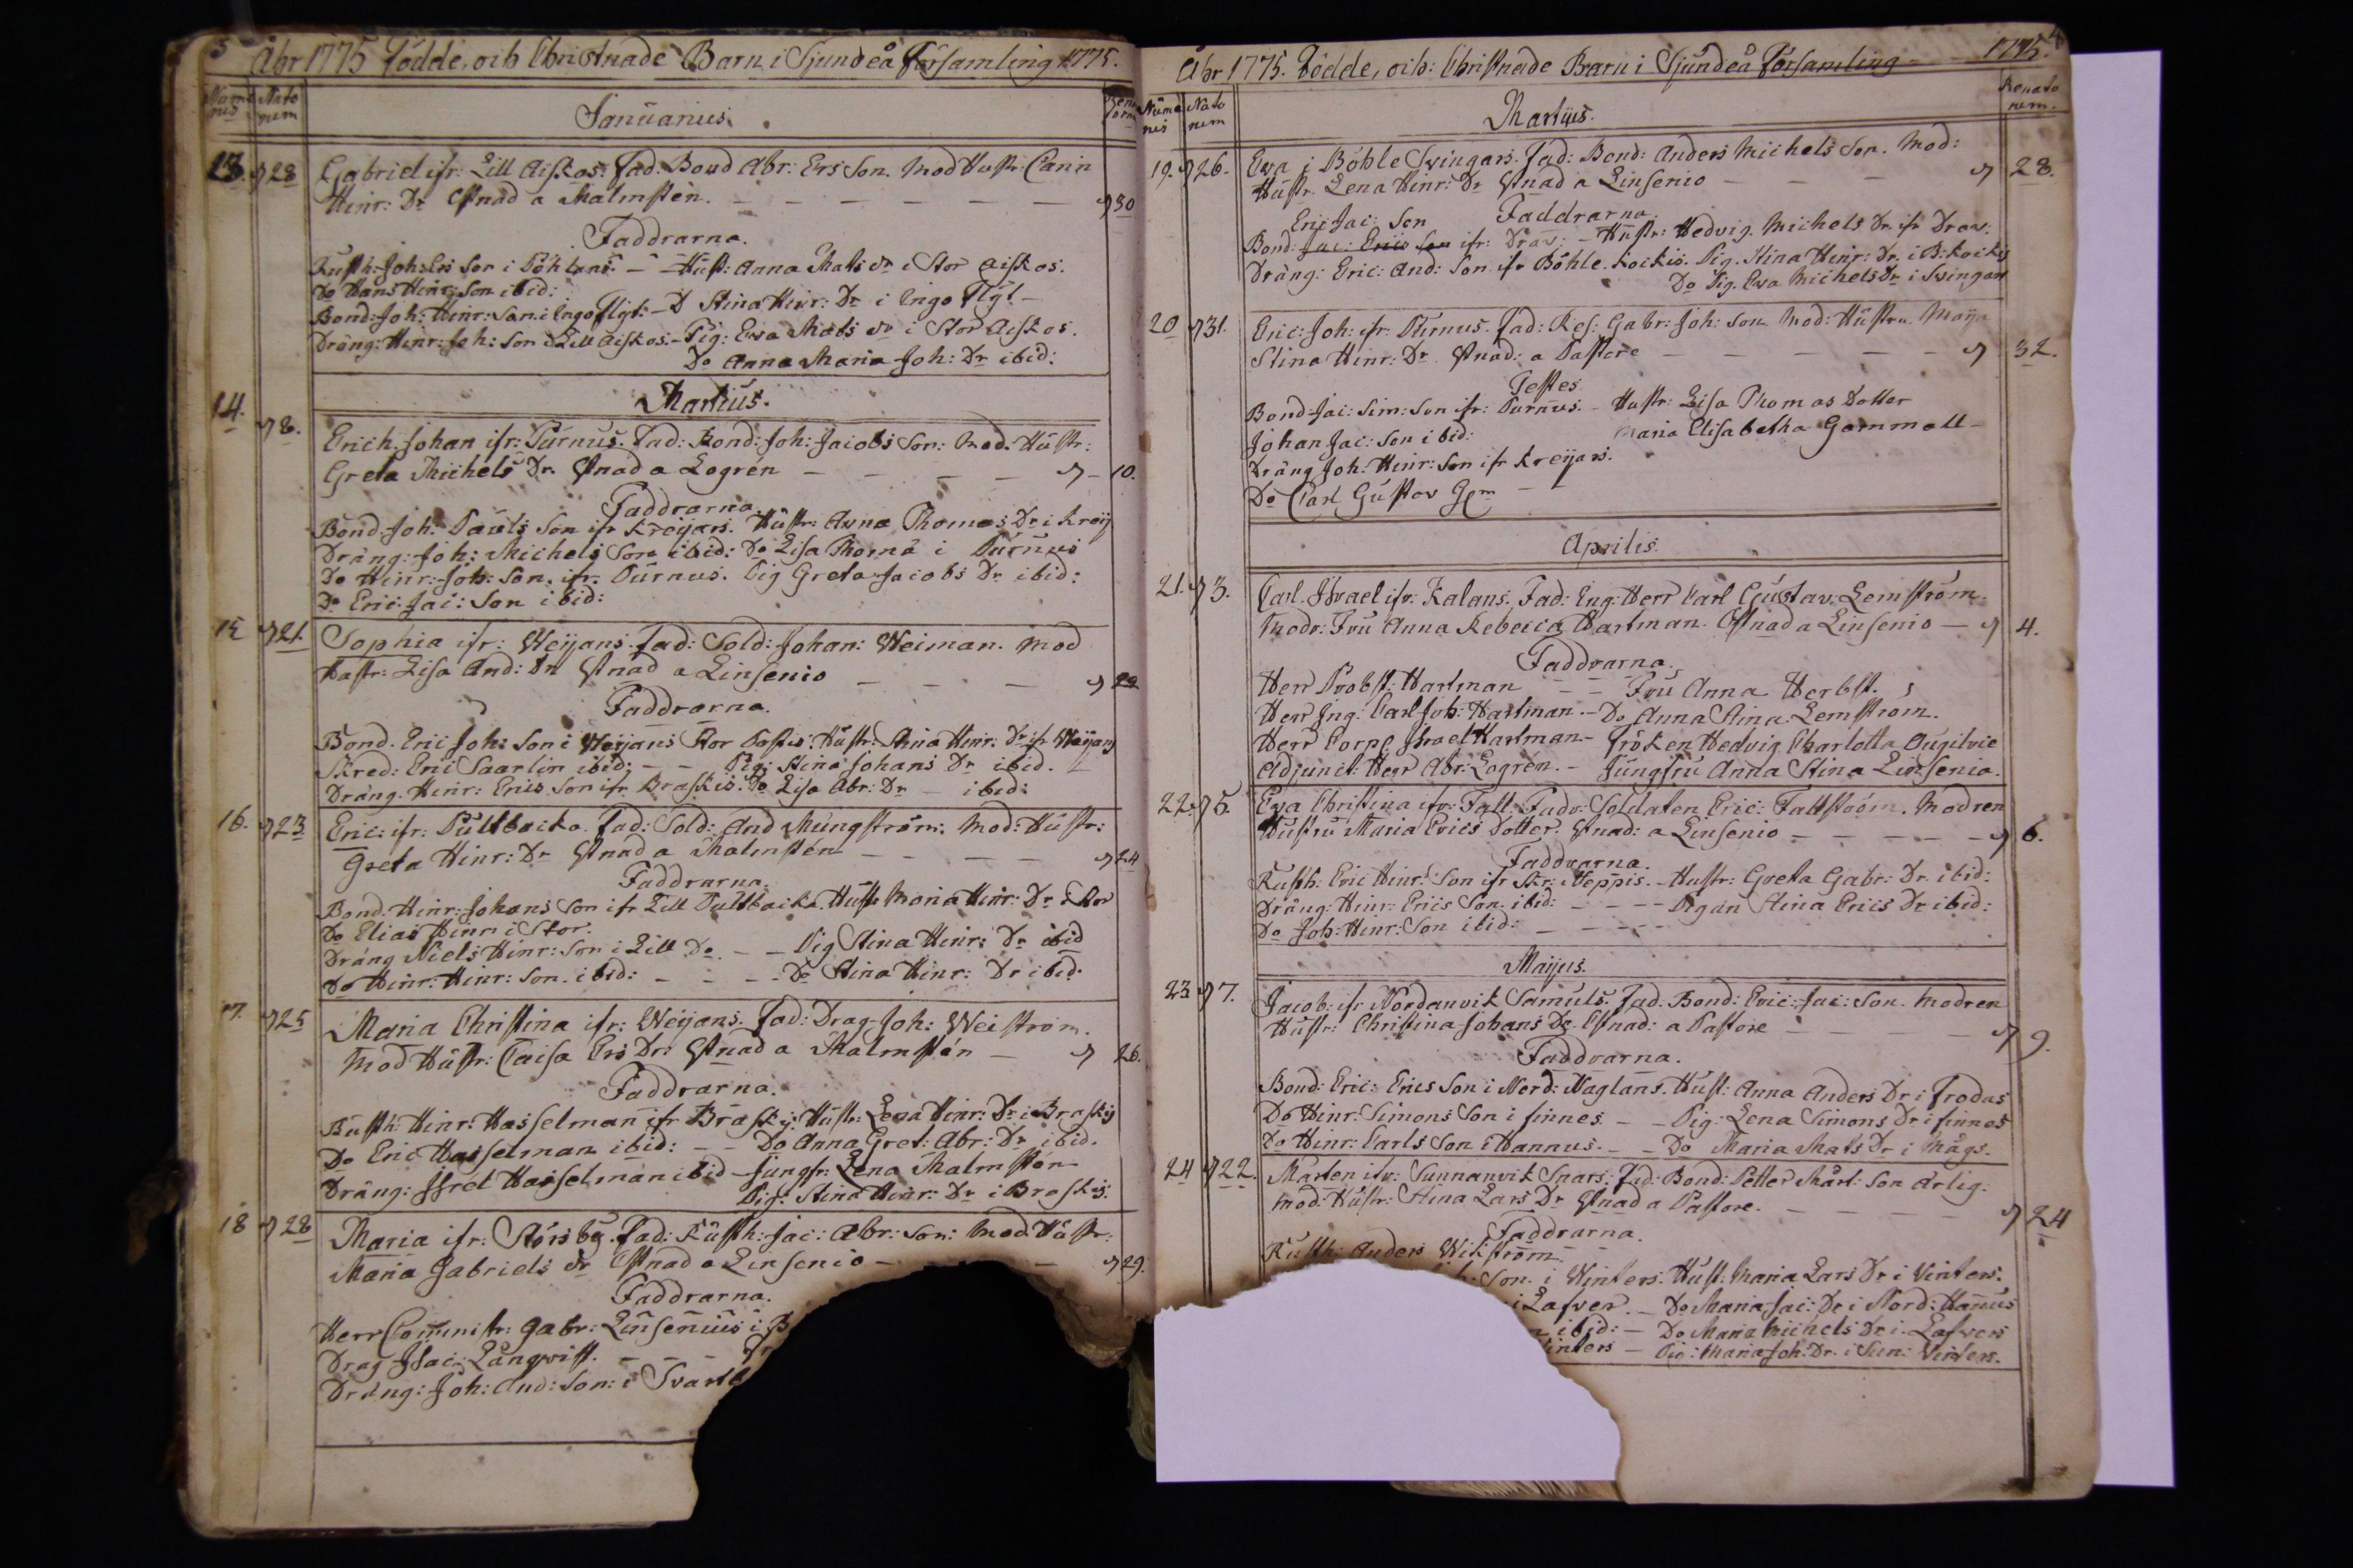 5 Åhr 1775 Födde, och Christnade Barn i Sjundeå Församling 1775.
Nume rus Nato rum
Januarius.
13. 28 Gabriel ifr: Lill Aiskos. Fad: Bond Abr: Ers Son. Mod Hustr: Carin
Hinr: Dr Chnad a Malmstén. 30
Faddrarna.
Rusth: Joh: Ers Son i Pöhlans. Hust: Anna Mats dr i Stor Aiskos.
Do Hans Hinr: Son ibid:
Bond: Joh: Hinr: Son. i Ingo Flyt: D Stina Hinr: Dr i Ingo Flyt
Dräng: Hinr: Joh: Son i Lill Aiskos. Pig: Ewa Mats dr i Stor Aiskos.
Do Anna Maria Joh: Dr ibid:
Martius.
14. 8. Erich Johan ifr: Purnus. Fad: Bond: Joh: Jacobs Son: Mod. Hustr:
Greta Michels Dr. Chnad a Logrén 10.
Faddrarna.
Bond: Joh: Pauls Son ifr Kreijars. Hustr: Anna Thomas Dr i Kreij
Dräng: Joh: Michels Son ibid: Do Lisa Thoma i Purnus
Do Hinr: Joh: Son. ifr. Purnus. Pig Greta Jacobs Dr ibid:
Do Eric Jac: Son ibid:
15 21. Sophia ifr: Weijans. Fad: Sold: Johan: Weiman. Mod
Hustr: Lisa And: Dr Chnad a Linsenio 22
Faddrarna.
Bond. Eric Joh: Son i Weijans Stor Hustr: Stina Hinr: Dr ifr Weijans
Skred: Eric Saarlin ibid: Pig: Stina Johans Dr ibid.
Dräng. Hinr: Erics Son ifr Braskis. Do Lisa Abr: Dr ibid:
16. 23 Eric: ifr: Pultbacka. Fad: Sold: And Mungström: Mod: Hustr:
Greta Hinr: Dr Chnad a Malmstén 24
Faddrarna.
Bond: Hinr: Johans Son ifr Lill Pultbacka. Hustr Maria Hinr: Dr i Stor
Do Elias Hinr i Stor.
Dräng Niels Hinr: Son i Lill Do Pig Stina Hinr: Dr ibid
Do Hinr: Hinr: Son. ibid: Do Stina Hinr: Dr ibid.
17. 25 Maria Christina ifr: Weijans. Fad: Drag: Joh: Weiström.
Mod Hustr: Caisa Ers Dr: Chnad a Malmstén 26.
Faddrarna.
Rusth: Hinr: Hasselman ifr Braskij. Hustr: Lena Hinr: Dr i Braskij
Do Eric Hasselman ibid: Do Anna Gret: Abr: Dr ibid.
Dräng: Isrel Hasselman ibid Jungfr: Lena Malmstén
Pig: Stina Hinr: Dr i Braskij.
18 28 Maria ifr: Störsby. Fad: Rusth: Jac: Abr: Son: Mod. Hustr:
Maria Gabriels dr Chnad a Linsenio 29.
Faddrarna.
Herr Comminstr: Gabr: Linsenius i B
Drag Isac: Långqvist.
Dräng: Joh: And: Son: i Svartb
Åhr 1775. Födde, och: Christnade Barn i Sjundeå Församling 1775.
Nume rus Nato rum Renato rum.
Martius.
19. 26. Ewa i Böhle Svingars. Fad: Bond: Anders Michels Son. Mod:
Hustr. Lena Hinr: Dr Chnad a Linsenio 28.
Faddrarna
Eric Jac: Son
Bond: Jac: Erics Son ifr: Drav: Hustr: Hedvig Michels Dr. ifr Drav:
Dräng: Eric: And: Son ifr Böhle Kockis. Pig. Stina Hinr: Dr. i B: Kockij
Do Pig. Ewa Michels Dr i Svingar
20 31. Eric: Joh: ifr. Purnus. Fad: Gabr: Joh: Son. Mod: Hustru Maija
Stina Hinr: Dr Chnad: a Pastore 32.
Testes
Bond Jac: Sim: Son ifr: Purnus. Hustr: Lisa Thomas Dotter
Johan Jac: Son ibid: Maria Elisabetha Gammall
Dräng Joh. Hinr: Son ifr Kreijars.
Do Carl Gustav
Aprilis.
21. 3. Carl. Israel ifr: Kalans. Fad: Eng: Herr Carl Gustav. Lemström.
Modr: Fru Anna Rebecca Hartman. Chnad a Linsenio 4.
Faddrarna.
Herr Probst: Hartman Fru Anna Herbst.
Herr Ing: Carl Joh: Hartman. Do Anna Stina. Lemström.
Herr Corpr Israel Hartman Fröken Hedvig Charlotta Ougilvie
Adjunct: Herr Abr: Logrén. Jungfru Anna Stina Linsenia.
22. 5. Ewa Christina ifr: Fall. Fadr: Soldaten Eric: Fallström. Modren
Hustru Maria Erics Dotter. Chnad: a Linsenio 6.
Faddrarna.
Rusth: Eric Hinr: Son ifr Neppis. Hustr: Greta Gabr: Dr. ibid:
Dräng: Hinr: Erics Son. ibid: Pigan Stina Erics Dr ibid:
Do Joh: Hinr: Son ibid:
Maijus.
23 7. Jacob: ifr Nordanvik Samuls. Fad. Bond: Eric: Jac: Son. Modren
Hustr: Christina Johans Dr. Chnad: a Pastore 9.
Faddrarna.
Bond: Eric: Erics Son i Nord: Naglans. Hust: Anna Anders Dr i Frodas
Do Hinr: Simons Son i finnes. Pig: Lena Simons Dr i finnes
Do Hinr: Carls Son i Hannus. Do Maria Mats Dr i Mågs.
24 22. Mårten ifr: Sunnanvik Snars: Fad: Bond: Petter Mårt: Son
Mod: Hustr: Stina Lars Dr Chnad a Pastore. 24
Faddrarna.
Rusth: Anders Wikström
Son. i Winters. Hust: Maria Lars Dr i Vinters.
i Lafver. Do Maria Jac: Dr i Nord: Hanus
n ibid: Do Maria Michels Dr i. Lafvers
inters Pig: Maria Joh: Dr. i Sun: Vinters.